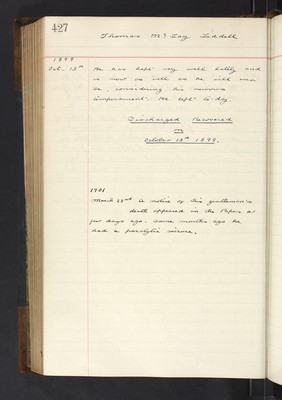 427
Thomas McJ Lay Liddell
1899
Oct. 13th He has kept very well lately and
is now as well as he will ever
be, considering his nervous
impairment. He left to-day
Discharged Recovered
on
October 13th 1899.
1901
March 23rd A notice of this gentleman's
death appeared in the Papers a
few days ago. Some months ago he
had a paralytic seizure.